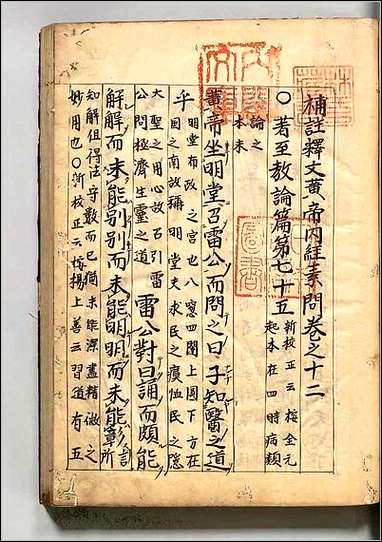 補註釋文黃帝內經素問卷之十二
〇著至教論篇第七十五
新校正云按全元
起本在四時病類
論之
本末
黃帝坐明堂召雷公而問之曰子知醫之道
乎
明堂布政之宮也八窓四闥上圓下方在
國之南故稱明堂夫求民之瘼恤民之隱
大聖之用心故召引雷
公問拯濟生靈之道
雷公對曰誦而頗能
解解而未能別別而未能明明而未能彰
言所
知解但得法守數而已猶未能深盡精微之
妙用也〇新校正云按楊上善云習道有五